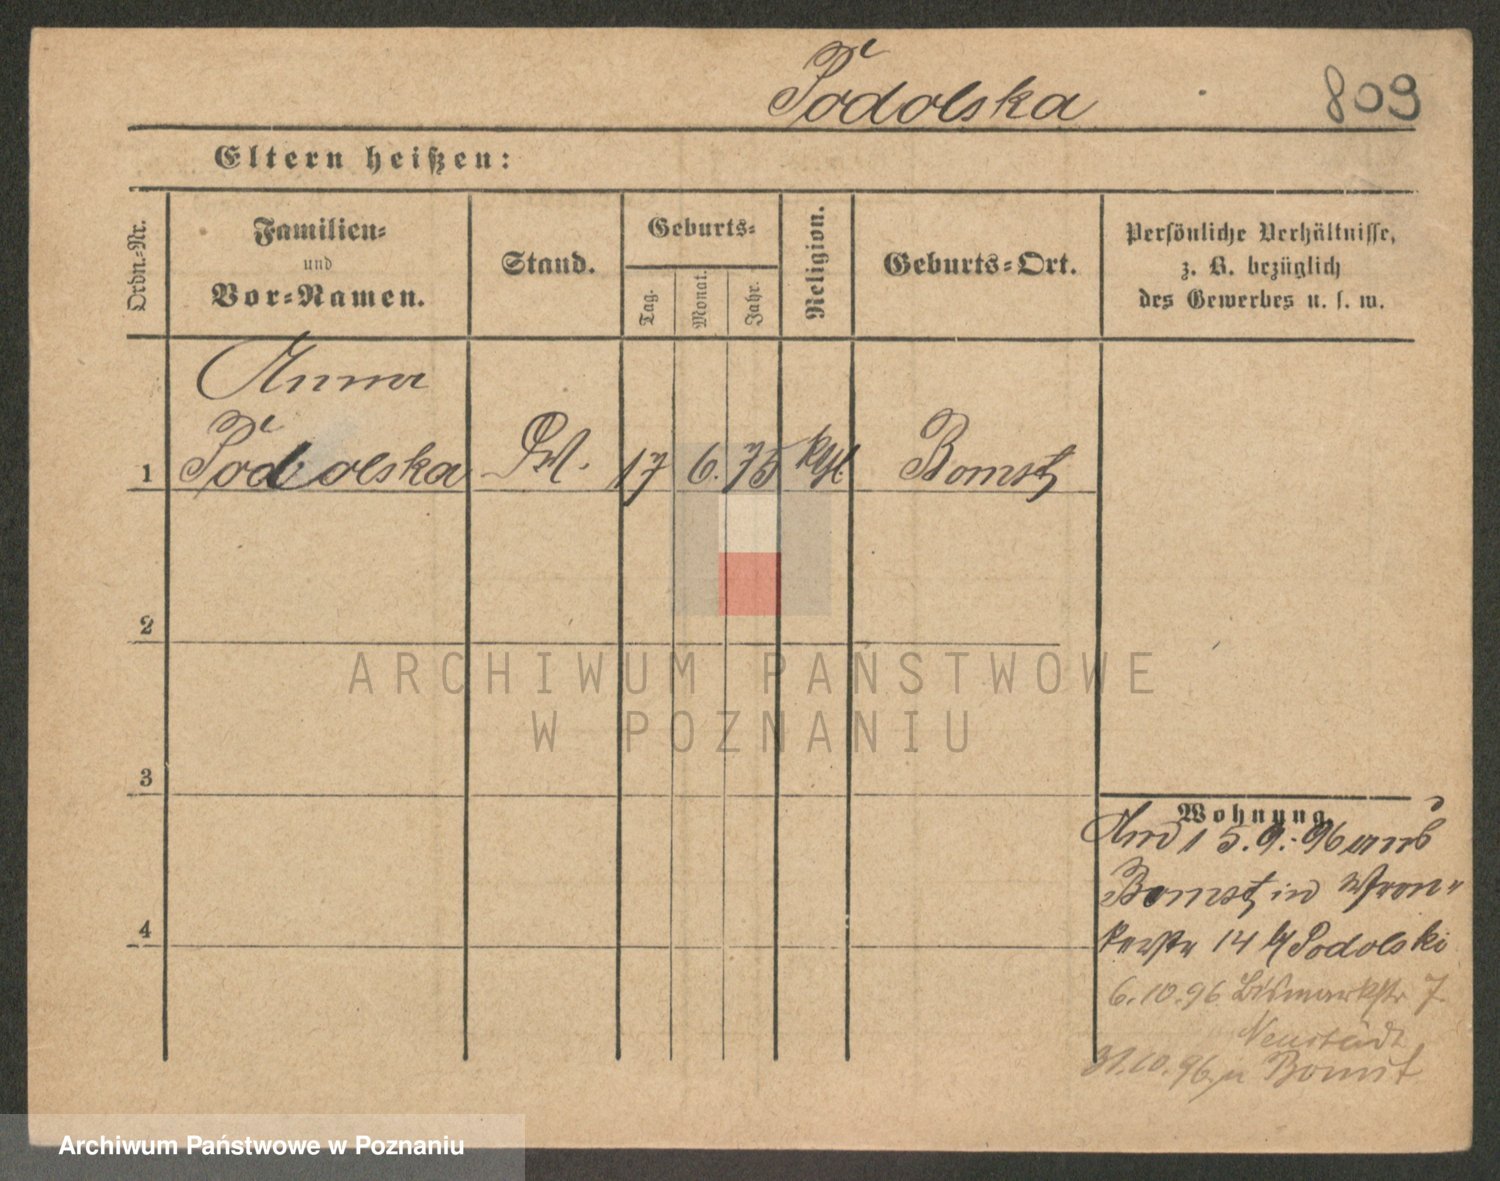 Podolska 809
Eltern heißen:
Ordn.-Nr.
Familien-
und
Vor-Namen.
Stand.
Geburts-
Tag.
Monat.
Jahr.
Religion.
Geburts-Ort.
Persönliche Verhältnisse,
z. B. bezüglich
des Gewerbes u. s. w.
Anna
1 Podolska 17 6. 75 kthl Bomst
2
3
4
Wohnung
15.9.96 aus
Bomst in Wron-
kerstr 14 b/ Podolski
6.10.96 Bismarkstr 7
Neustadt
31.10.96 n Bomst
ARCHIWUM PAŃSTWOWE
W POZNANIU
Archiwum Państwowe w Poznaniu